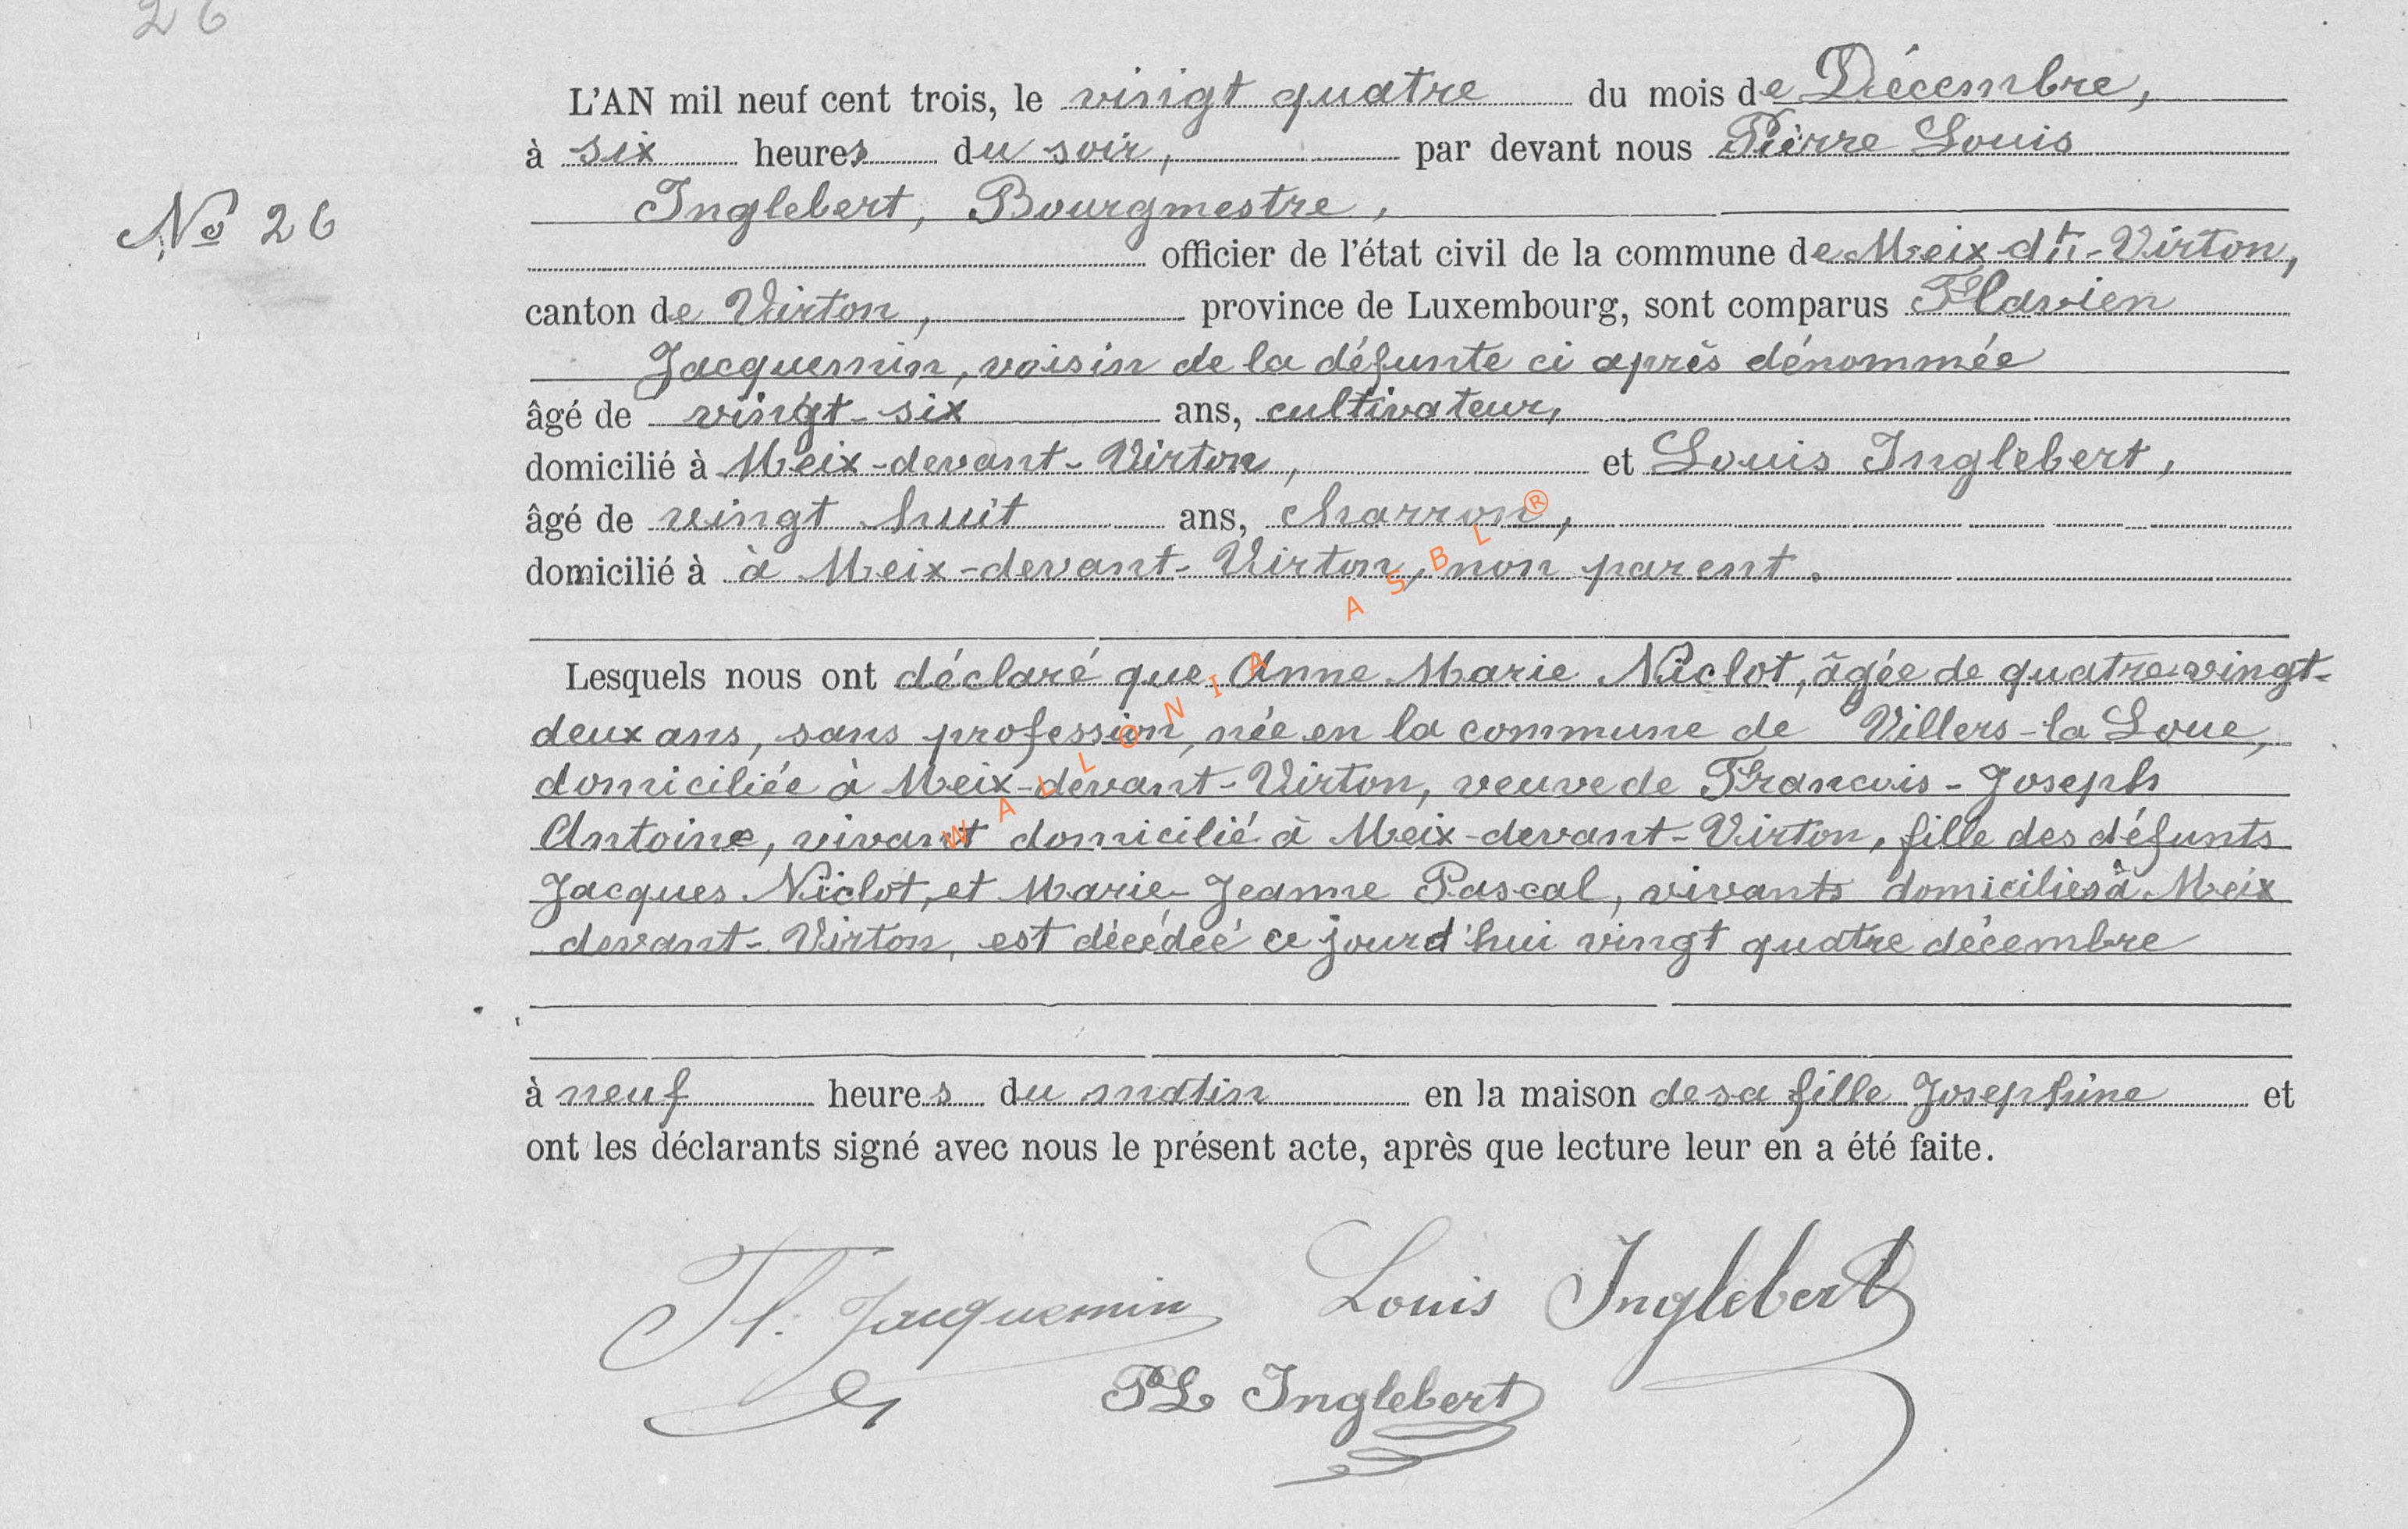 26
L'AN mil neuf cent trois, le vingt quatre du mois de Décembre,
à six heures du soir, par devant nous Pierre Louis
No 26
Inglebert, Bourgmestre,
officier de l'état civil de la commune de Meix-dt-Virton,
canton de Virton, province de Luxembourg, sont comparus Flavien
Jacquemin, voisin de la défunte ci après dénommée
âgé de vingt-six ans, cultivateur,
domicilié à Meix-devant-Virton, et Louis Inglebert,
âgé de vingt huit ans, charron,
domicilié à à Meix-devant-Virton, non parent.
Lesquels nous ont déclaré que Anne Marie Niclot, âgée de quatre-vingt-
deux ans, sans profession, née en la commune de Villers-la Loue,
domiciliée à Meix-devant-Virton, veuve de Francois-Joseph
Antoine, vivant domicilié à Meix-devant-Virton, fille des défunts
Jacques Niclot, et Marie-Jeanne Pascal, vivants domiciliés à Meix
devant-Virton, est décédée ce jourd'hui vingt quatre décembre
à neuf heures du matin en la maison de sa fille Josephine et
ont les déclarants signé avec nous le présent acte, après que lecture leur en a été faite.
Fl. Jacquemin Louis Inglebert
PL Inglebert
WALLONIA ASBL®